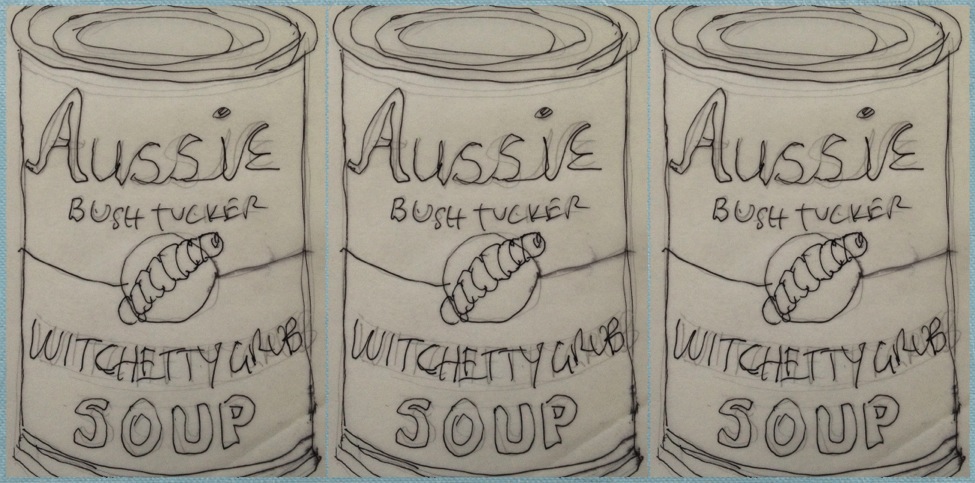 Aussie
BUSH TUCKER
WITCHETTY GRUB
SOUP
Aussie
BUSH TUCKER
WITCHETTY GRUB
SOUP
Aussie
BUSH TUCKER
WITCHETTY GRUB
SOUP